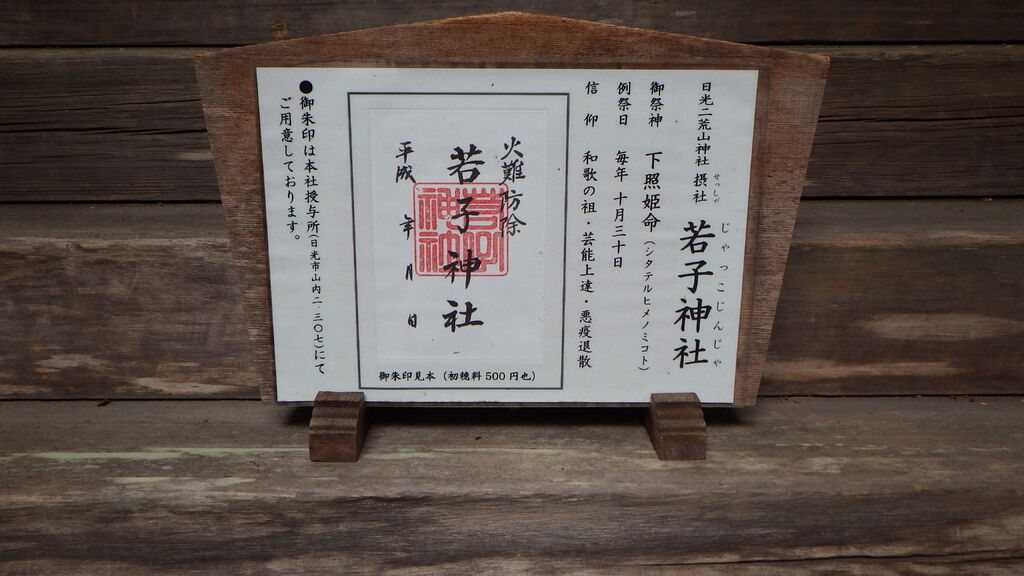 日光二荒山神社 摂社 若子神社
せっしゃ じゃっこじんじゃ
御祭神 下照姫命（シタテルヒメノミコト）
例祭日 毎年 十月三十日
信仰 和歌の祖・芸能上達・悪疫退散
火難防除
若子神社
若子神社
平成 年 月 日
御朱印見本（初穂料500円也）
●御朱印は本社授与所（日光市山内二‐三〇七）にて
ご用意しております。